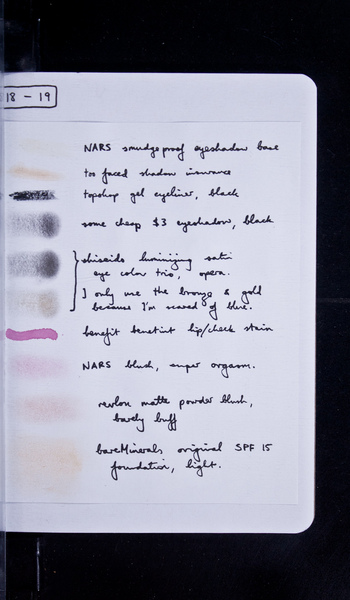 18 - 19
NARS smudgeproof eyeshadow base
too faced shadow insurance
topshop gel eyeliner, black
some cheap $3 eyeshadow, black
shiseido luminizing satin
eye color trio, opera.
I only use the bronze & gold
because I'm scared of blue.
benefit benetint lip/cheek stain
NARS blush, super orgasm.
revlon matte powder blush,
barely buff
bareMinerals original SPF 15
foundation, light.